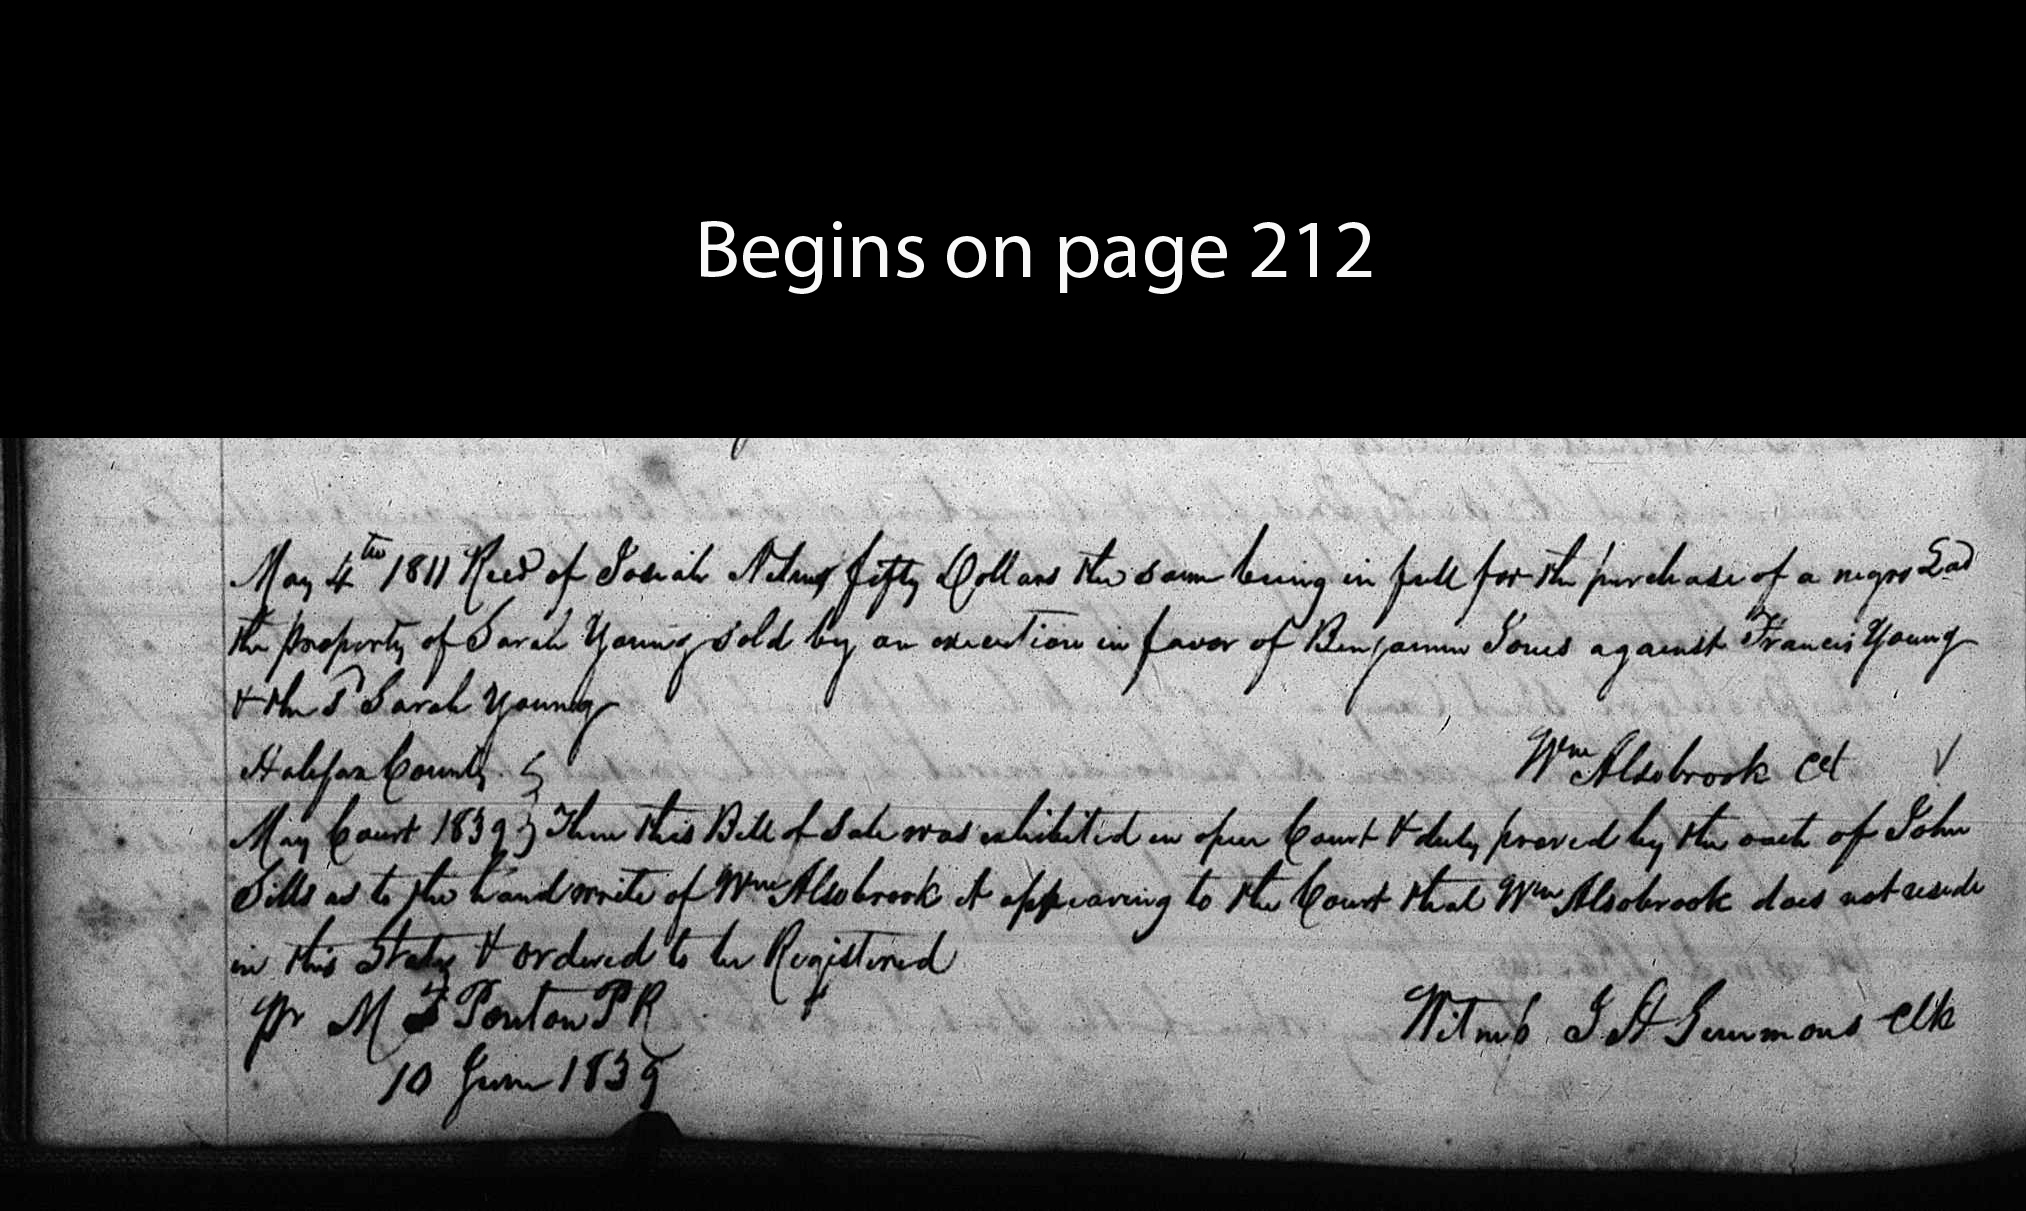 Begins on page 212
May 4th 1811 Recd of Josiah Nelms fifty Dollars the same being in full for the purchase of a negro Lad
the property of Sarah Young sold by an execution in favor of Benjamin Jones against Francis Young
& the sd Sarah Young
Halifax County
Wm Alsobrook
May Court 1839 } Then this Bill of Sale was exhibited in open Court & duly proved by the oath of John
Sills as to the hand write of Wm Alsobrook it appearing to the Court that Wm Alsobrook does not reside
in this State & ordered to be Registered
Pr M F Ponton P R
Witness J H Simmons Clk
10 June 1839